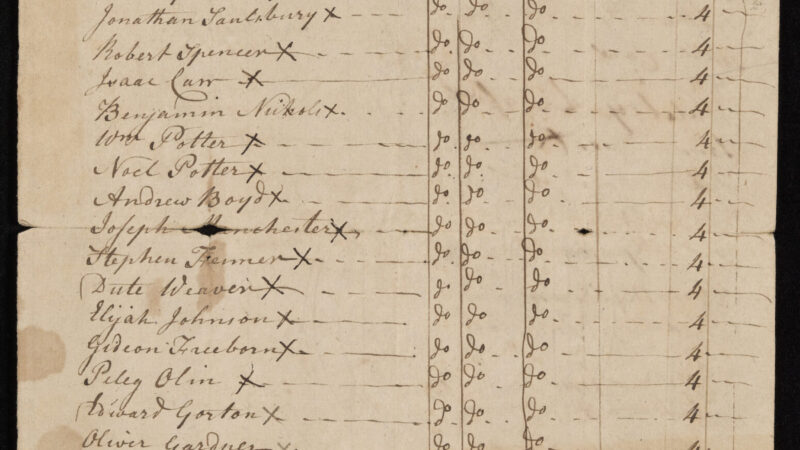 Jonathan Saulsbury x do do do 4
Robert Spencer x do do do 4
Isaac Carr x do do do 4
Benjamin Nickols x do do do 4
Wm Potter x do do do 4
Noel Potter x do do do 4
Andrew Boyd x do do do 4
Joseph Manchester x do do do 4
Stephen Fenner x do do do 4
Dute Weaver x do do do 4
Elijah Johnson x do do do 4
Gideon Freeborn x do do do 4
Peleg Olin x do do do 4
Edward Gorton x do do do 4
Oliver Gardner x do do do 4